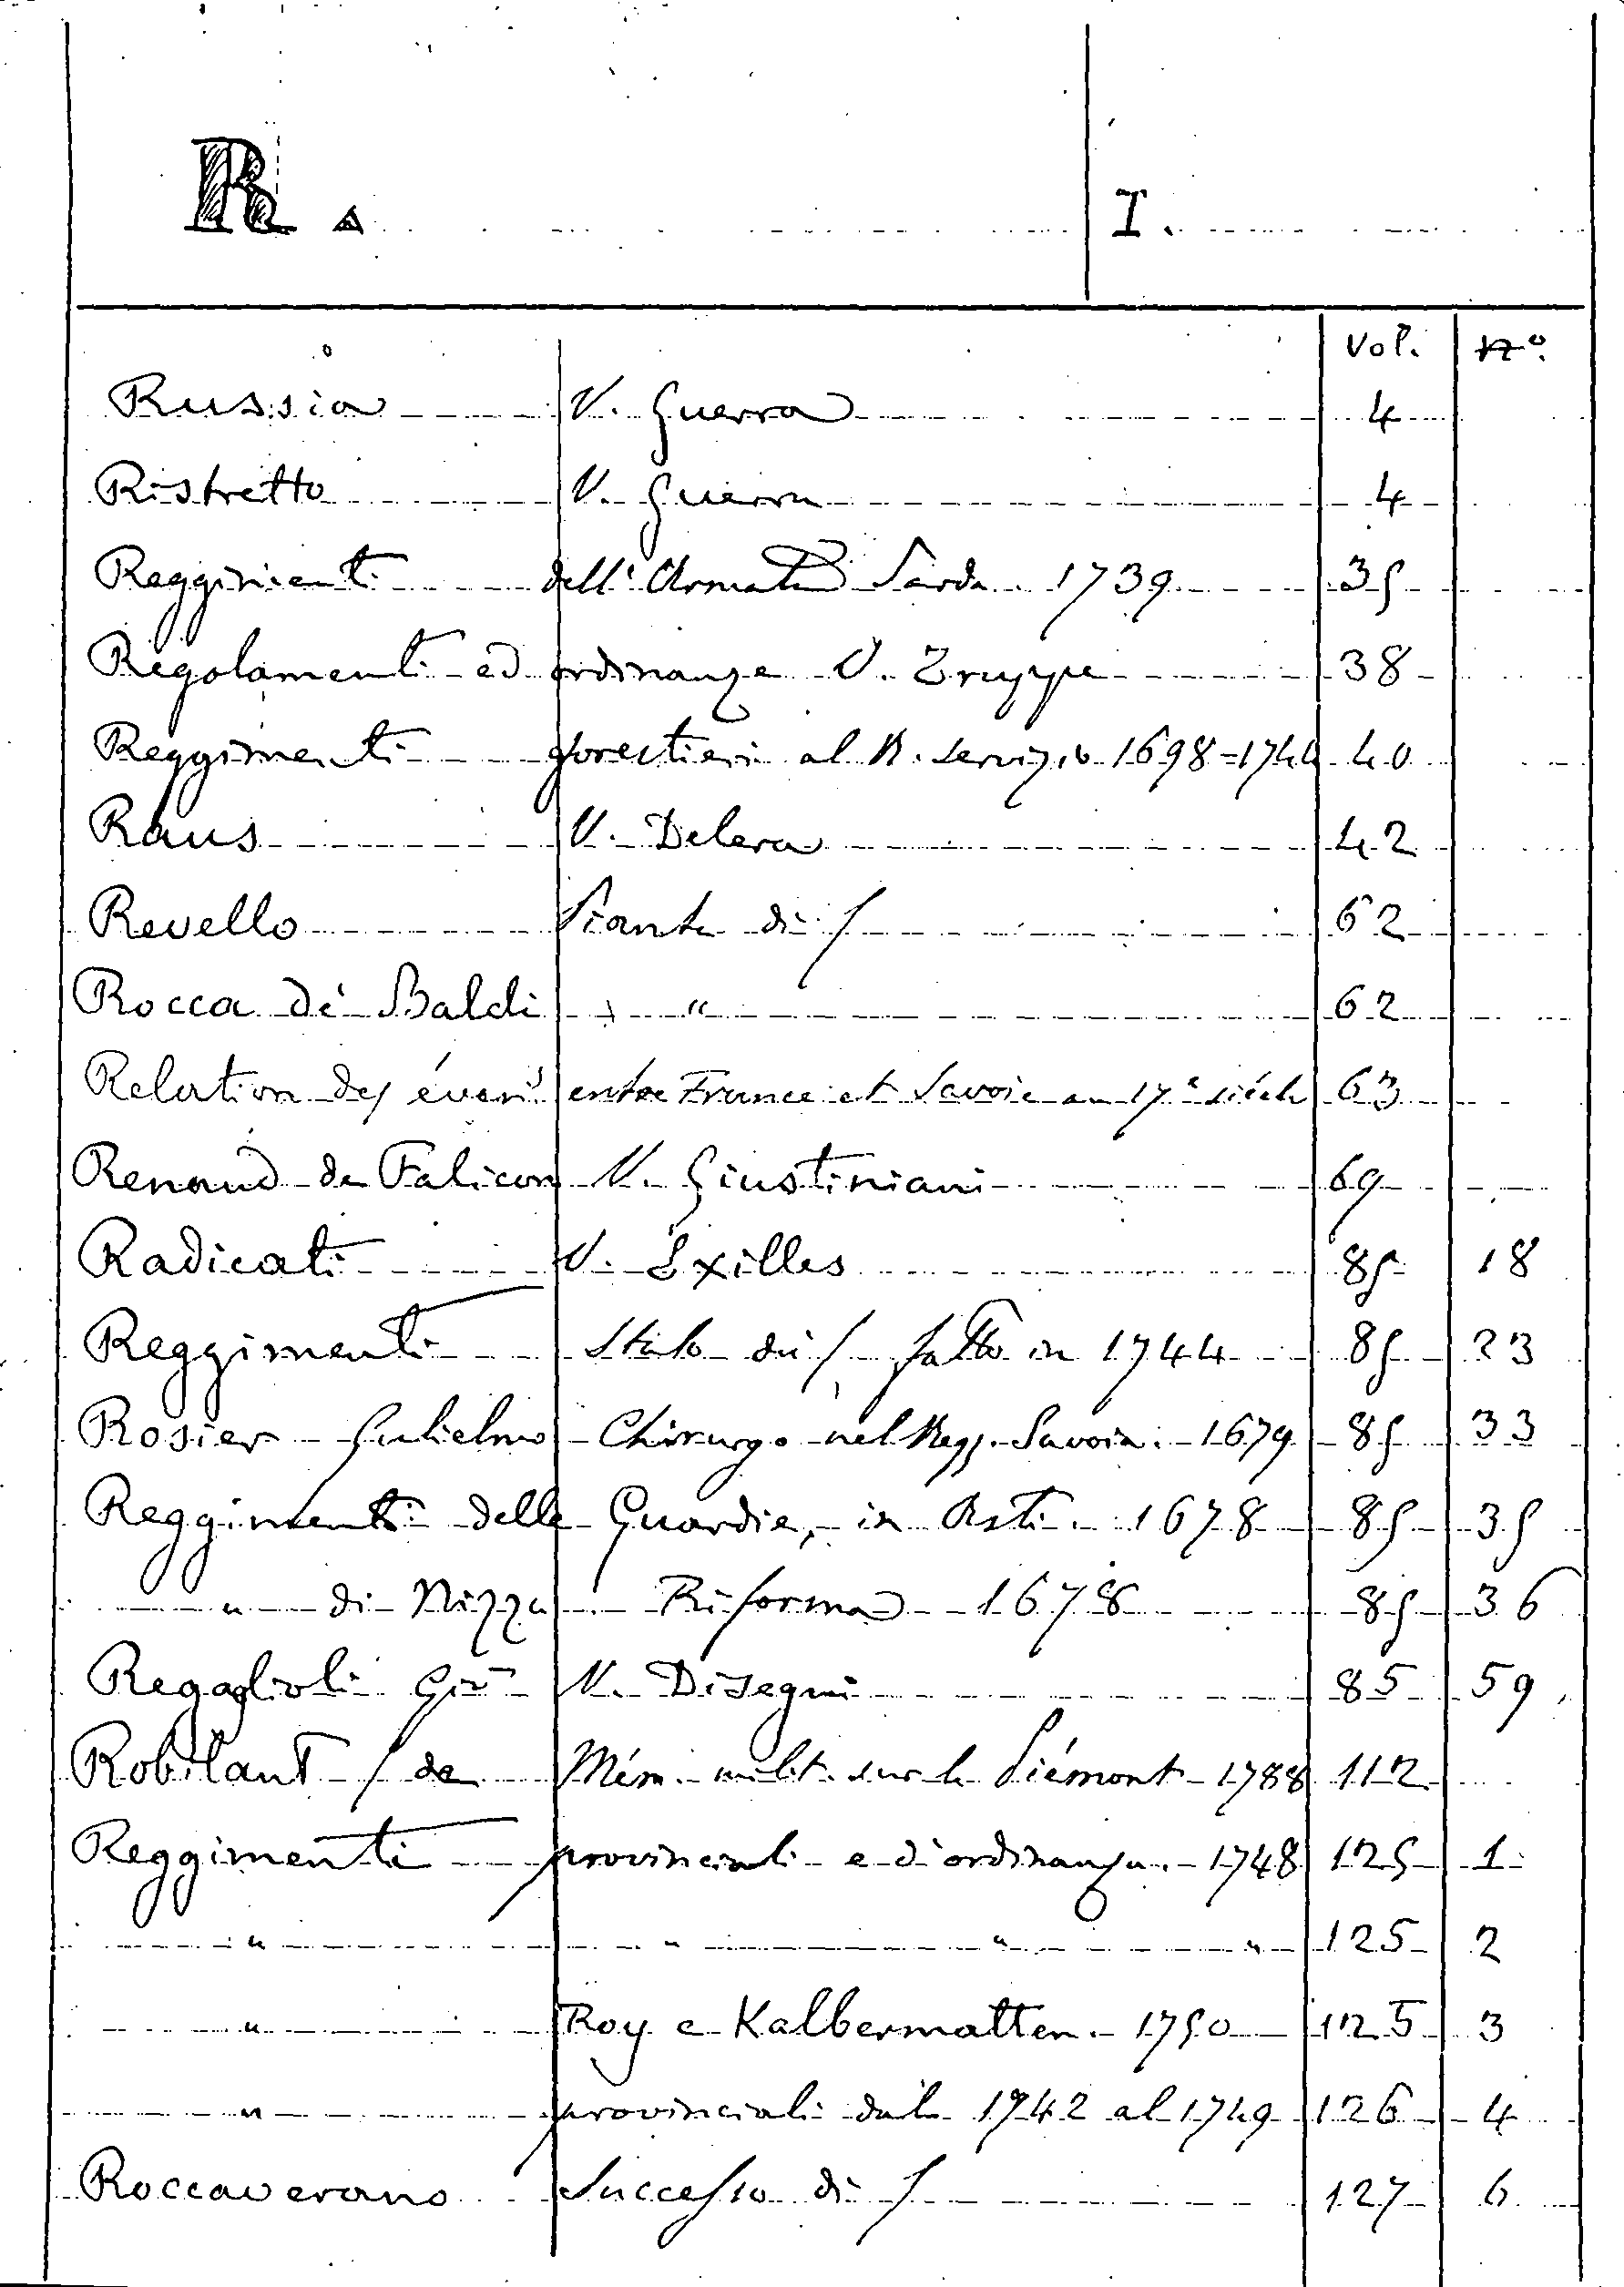 R. I.
Vol. No.
Russia V. Guerra 4
Ristretto V. Guerra 4
Reggimenti dell' Armata Sarda 1739 35
Regolamenti ed ordinanze V. Truppe 38
Reggimenti forestieri al R. servizio 1698=1744 40
Raus V. Delera 42
Revello Pianta di / 62
Rocca de' Baldi " " 62
Relation des éven.s entre France et Savoie au 17e siècle 63
Renaud de Falicon V. Giustiniani 69
Radicati V. Exilles 85 18
Reggimenti Stato di / fatto in 1744 85 23
Rosier Gulielmo Chirurgo nel Regg. Savoia. 1679 85 33
Reggimenti delle Guardie, in Asti. 1678 85 35
" di Nizza Riforma 1678 85 36
Regaglioli Gio V. Disegni 85 59
Robilant / de Mém. milit. sur le Piémont 1788 112
Reggimenti provinciali e d'ordinanza. 1748 125 1
" " " " 125 2
" Roy e Kalbermatten. 1750 125 3
" provinciali dal 1742 al 1749 126 4
Roccaverano Successo di / 127 6